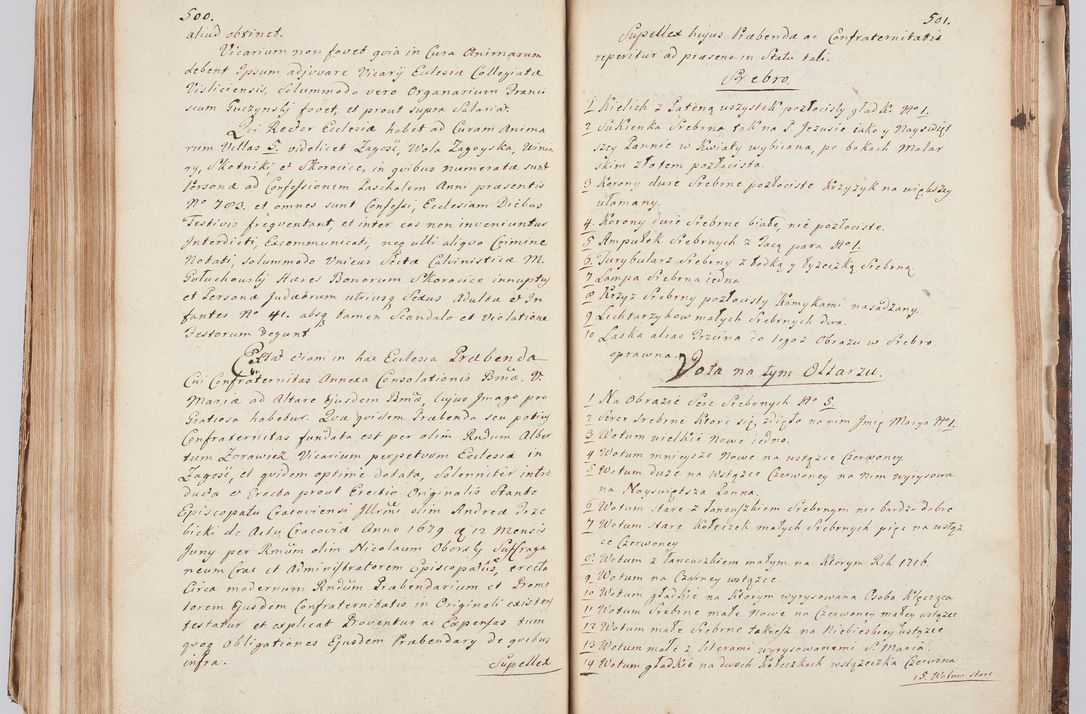 500.
aliud obtinet.
Vicarium non fovet quia in Cura Animarum
debent Ipsum adjuvare Vicarij Eclesiæ Collegiatæ
Visliciensis, Solummodo vero Organarium Franci
scum Puczynskj fovet, et prout supra Salariat.
Qvi Rector Ecclesiæ habet ad Curam Anima
rum Villas 5. videlicet Zagość, Wola Zagoyska, Winia
ry, Skotniki et Skorocice, in quibus numeratæ sunt
Personæ ad Confessionem Paschalem Anni præsentis
Nº 783. et omnes sunt Confessi, Ecclesiam Diebus
Festivis freqventant, et inter eos non inveniuntur
Interdicti, Excommunicati, neq ulli aliqvo Crimine
Notati, solummodo Unicus Sectæ Calvinisticæ M.
Gołuchowskj Hæres Bonorum Skorocice innuptus
et Personæ Judæorum utriusq Sexus Adulta et In
fantes Nº 41. absq tamen Scandalo et Violatione
Festorum Degunt
Extat etiam in hac Ecclesia Præbenda
Cui Confraternitas Annexa Consolationis Bmæ. V.
Mariæ ad Altare Ejusdem Bmæ, Cujus Imago pro
Gratiosa habetur. Qvæ qvidem Præbenda seu potius
Confraternitas fundata est per olim Rndum Alber
tum Zorawicz Vicarium perpetvum Ecclesiæ in
Zagość, et qvidem optime dotata, Solenniter intro
ducta et Erecta prout Erectio Originalis Stante
Episcopatu Cracoviensi Illmi olim Andreæ Trze
bicki de Actu Cracoviæ Anno 1679. q 12 Mensis
Juny per Rmum olim Nicolaum Oborskj Suffraga
neum Crac et Administratorem Episcopatus, erecta
Circa modernum Rndum Præbendarium et Promo
torem Ejusdem Confraternitatis in Originali existens
testatur et explicat Proventus ac Expensas tum
qvoq obligationes Ejusdem Præbendary de qvibus
infra.
Supellex
501.
Supellex hujus Præbendæ ac Confraternitatis
reperitur ad præsens in Statu tali.
Srebro
1 Kielich z Pateną wszystek pozłocisty gładki Nº 1.
2 Sukienka Srebrna tak na P. Jezusie iako y Nayswięt
szey Pannie w Kwiaty wybiiana, po bokach Malar
skim złotem pozłocista.
3 Korony dwie Srebrne pozłociste Krzyzyk na większy
ułamany.
4. Korony dwie Srebrne białe, nie pozłociste.
5 Ampułek Srebrnych z Tacą para Nº 1.
6. Turybularz Srebrny z Łodką y Łyzeczką Srebrną
7 Lampa Srebrna iedna
8 Krzyz Srebrny pozłocisty Kamykami nasadzany.
9 Lichtarzykow małych Srebrnych dwa.
10 Laska alias Trzcina do tegoz Obrazu w Srebro
oprawna.
Vota na tym Ołtarzu.
1 Na Obrazie Serc Srebrnych Nº 5
2 Serce Srebrne Ktore się zdięło na nim Jmię Marya Nº 1.
3 Wotum wielkie Nowe iedno.
4 Wotum mnieysze Nowe na wstązce Czerwoney.
5 Wotum duze na Wstązce Czerwoney na nim wyrysowa
na Nayswiętsza Panna.
6 Wotum stare z łancuszkiem Srebrnym nie bardzo dobre
7 Wotum stare Kołeczek małych Srebrnych pięc na wstąz
ce Czerwoney
8. Wotum z łancuszkiem małym na Ktorym Rok 1716.
9 Wotum na Czarney wstązce.
10 Wotum gładkie na Ktorym wyrysowana Osoba Klęcząca
11 Wotum Srebrne małe Nowe na Czerwoney małey wstązce
12 Wotum małe Srebrne takze na Niebieskiey wstązce
13 Wotum małe z literami wyrysowanemi S. Maria.
14 Wotum gładkie na dwoch Kołeczkach wstązeczka Czerwona
15. Wotum stare